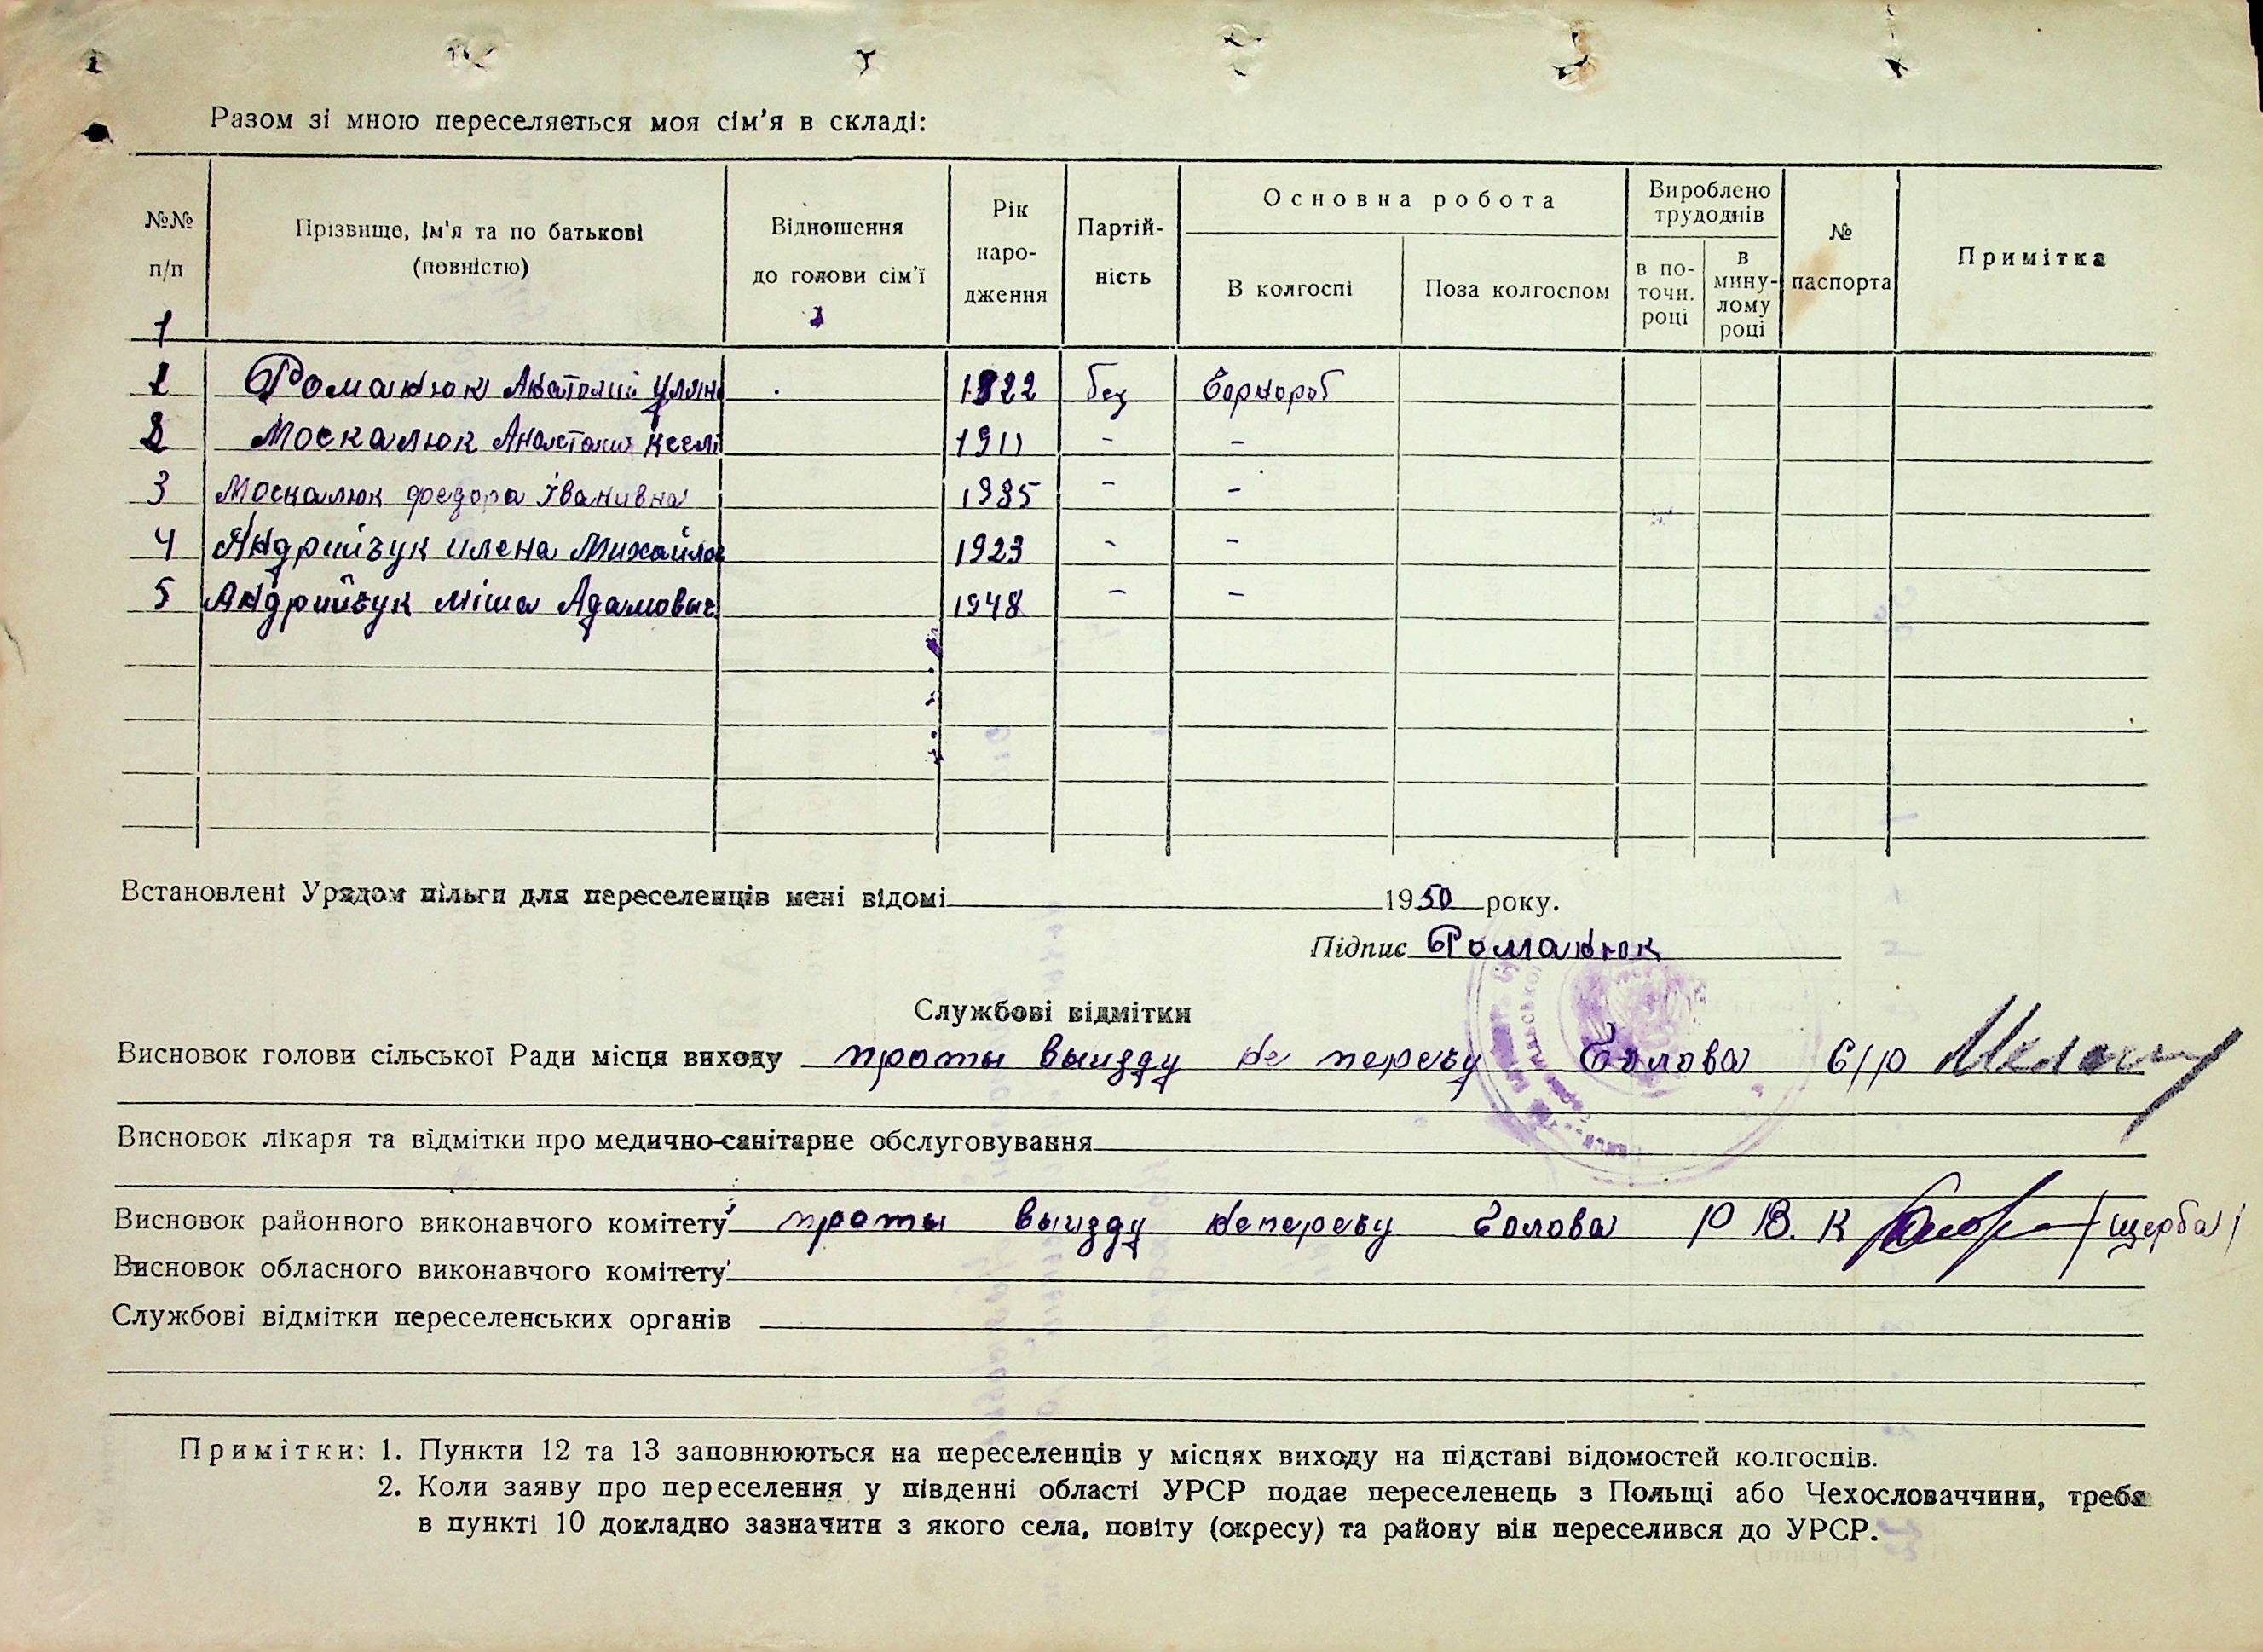 Разом зі мною переселяється моя сім'я в складі:
№№ п/п
Прізвище, ім'я та по батькові (повністю)
Відношення до голови сім'ї
Рік народження
Партійність
Основна робота
В колгоспі
Поза колгоспом
Вироблено трудоднів
в поточн. році
в минулому році
№ паспорта
Примітка
1
Романюк Анатолий 1922 без
2 Москалюк 1911 - -
3 Москалюк федора Іванивна 1935 - -
4 Андрийчук илена Михайлов 1923 - -
5 Андрийчук міша Адамович 1948 - -
Встановлені Урядом пільги для переселенців мені відомі 1950 року.
Підпис Романюк
Службові відмітки
Висновок голови сільської Ради місця виходу проты выизду не перечу Голова с/р
Висновок лікаря та відмітки про медично-санітарне обслуговування
Висновок районного виконавчого комітету проты выизду неперечу Голова Р В. К /щерба/
Висновок обласного виконавчого комітету
Службові відмітки переселенських органів
Примітки: 1. Пункти 12 та 13 заповнюються на переселенців у місцях виходу на підставі відомостей колгоспів.
2. Коли заяву про переселення у південні області УРСР подає переселенець з Польщі або Чехословаччини, треба
в пункті 10 докладно зазначити з якого села, повіту (окресу) та району він переселився до УРСР.